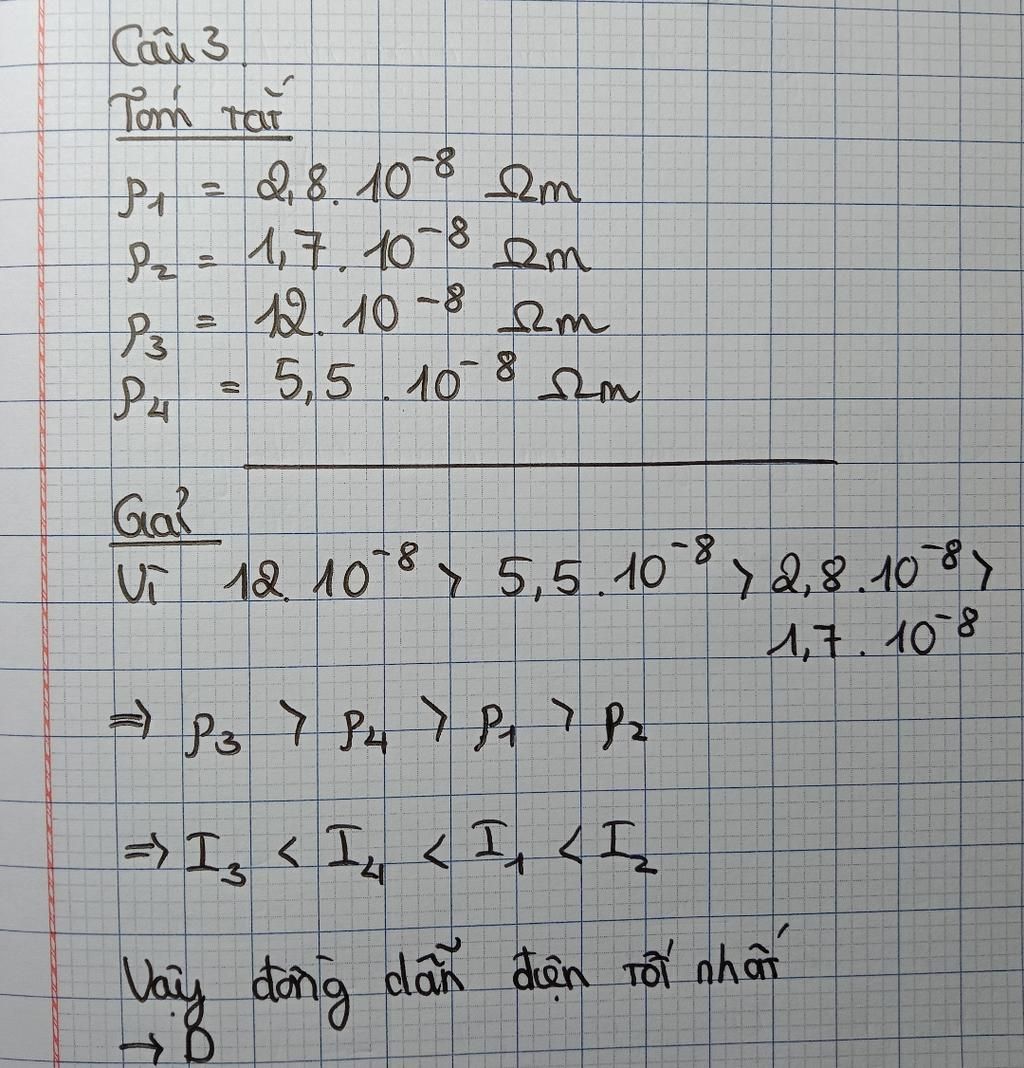 Câu 3.
Tóm tắt
ρ₁ = 2,8. 10⁻⁸ Ωm
ρ₂ = 1,7. 10⁻⁸ Ωm
ρ₃ = 12. 10⁻⁸ Ωm
ρ₄ = 5,5 . 10⁻⁸ Ωm
Giải
Vì 12. 10⁻⁸ > 5,5. 10⁻⁸ > 2,8. 10⁻⁸ >
1,7. 10⁻⁸
⇒ ρ₃ > ρ₄ > ρ₁ > ρ₂
⇒ I₃ < I₄ < I₁ < I₂
Vậy đồng dẫn điện tốt nhất
→ D